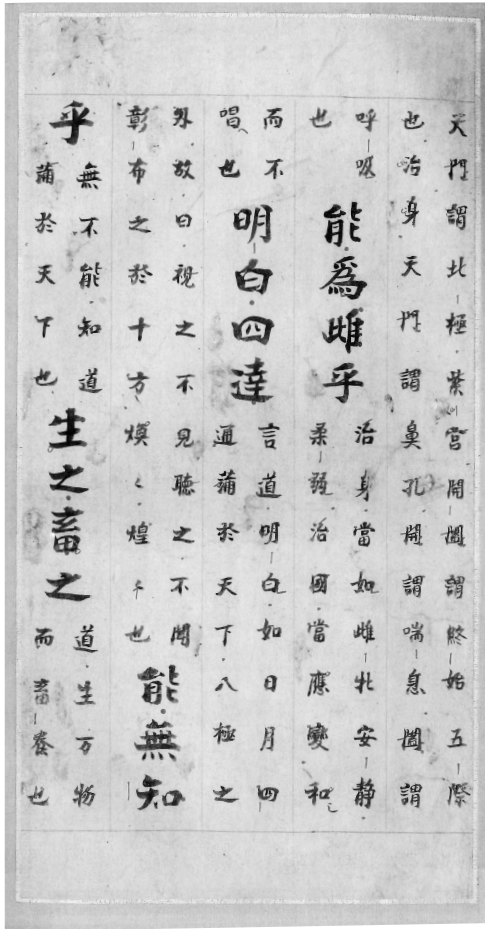 天門謂北極紫宮開闔謂終始五際
也治身天門謂鼻孔開謂喘息闔謂
呼吸
也
能爲雌乎
治身當如雌牝安静
柔弱治國當應變和
而不
唱也
明白四達
言道明白如日月四
通蒲於天下八極之
外故曰視之不見聽之不聞
彰布之於十方煥〻煌〻也
能無知
乎
無不能知道
蒲於天下也
生之畜之
道生万物
而畜養也